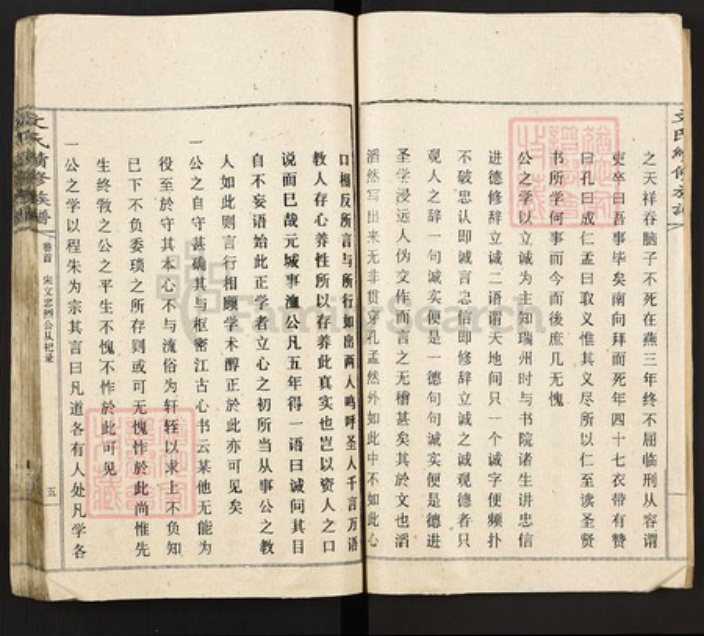 之天祥吞脑子不死在燕三年终不屈临刑从容谓
吏卒曰吾事毕矣南向拜而死年四十七衣带有赞
曰孔曰成仁孟曰取义惟其义尽所以仁至读圣贤
书所学何事而今而後庶几无愧
公之学以立诚为主知瑞州时与书院诸生讲忠信
进德修辞立诚二语谓天地间只一个诚字便频扑
不破忠认即诚言忠信即修辞立诚之诚观德者只
观人之辞一句诚实便是一德句句诚实便是德进
圣学浸远人伪文作而言之无稽甚矣其於文也滔
滔然写出来无非贯穿孔孟然外如此中不如此心
口相反所言与所行如出两人呜呼圣人千言万语
教人存心养性所以存养此真实也岂以资人之口
说而巳哉元城事涑公凡五年得一语曰诚问其目
自不妄语始此正学者立心之初所当从事公之教
人如此则言行相顾学术醇正於此亦可见矣
一公之自守甚确其与枢密江古心书云某他无能为
役至於守其本心不与流俗为轩轾以求上不负知
已下不负委琐之所存则或可无愧怍於此尚惟先
生终教之公之平生不愧不怍於此可见
一公之学以程朱为宗其言曰凡道各有人处凡学各
文氏续修族谱
卷首
宋文忠烈公从祀录
五
文氏续修族谱
FamilySearch